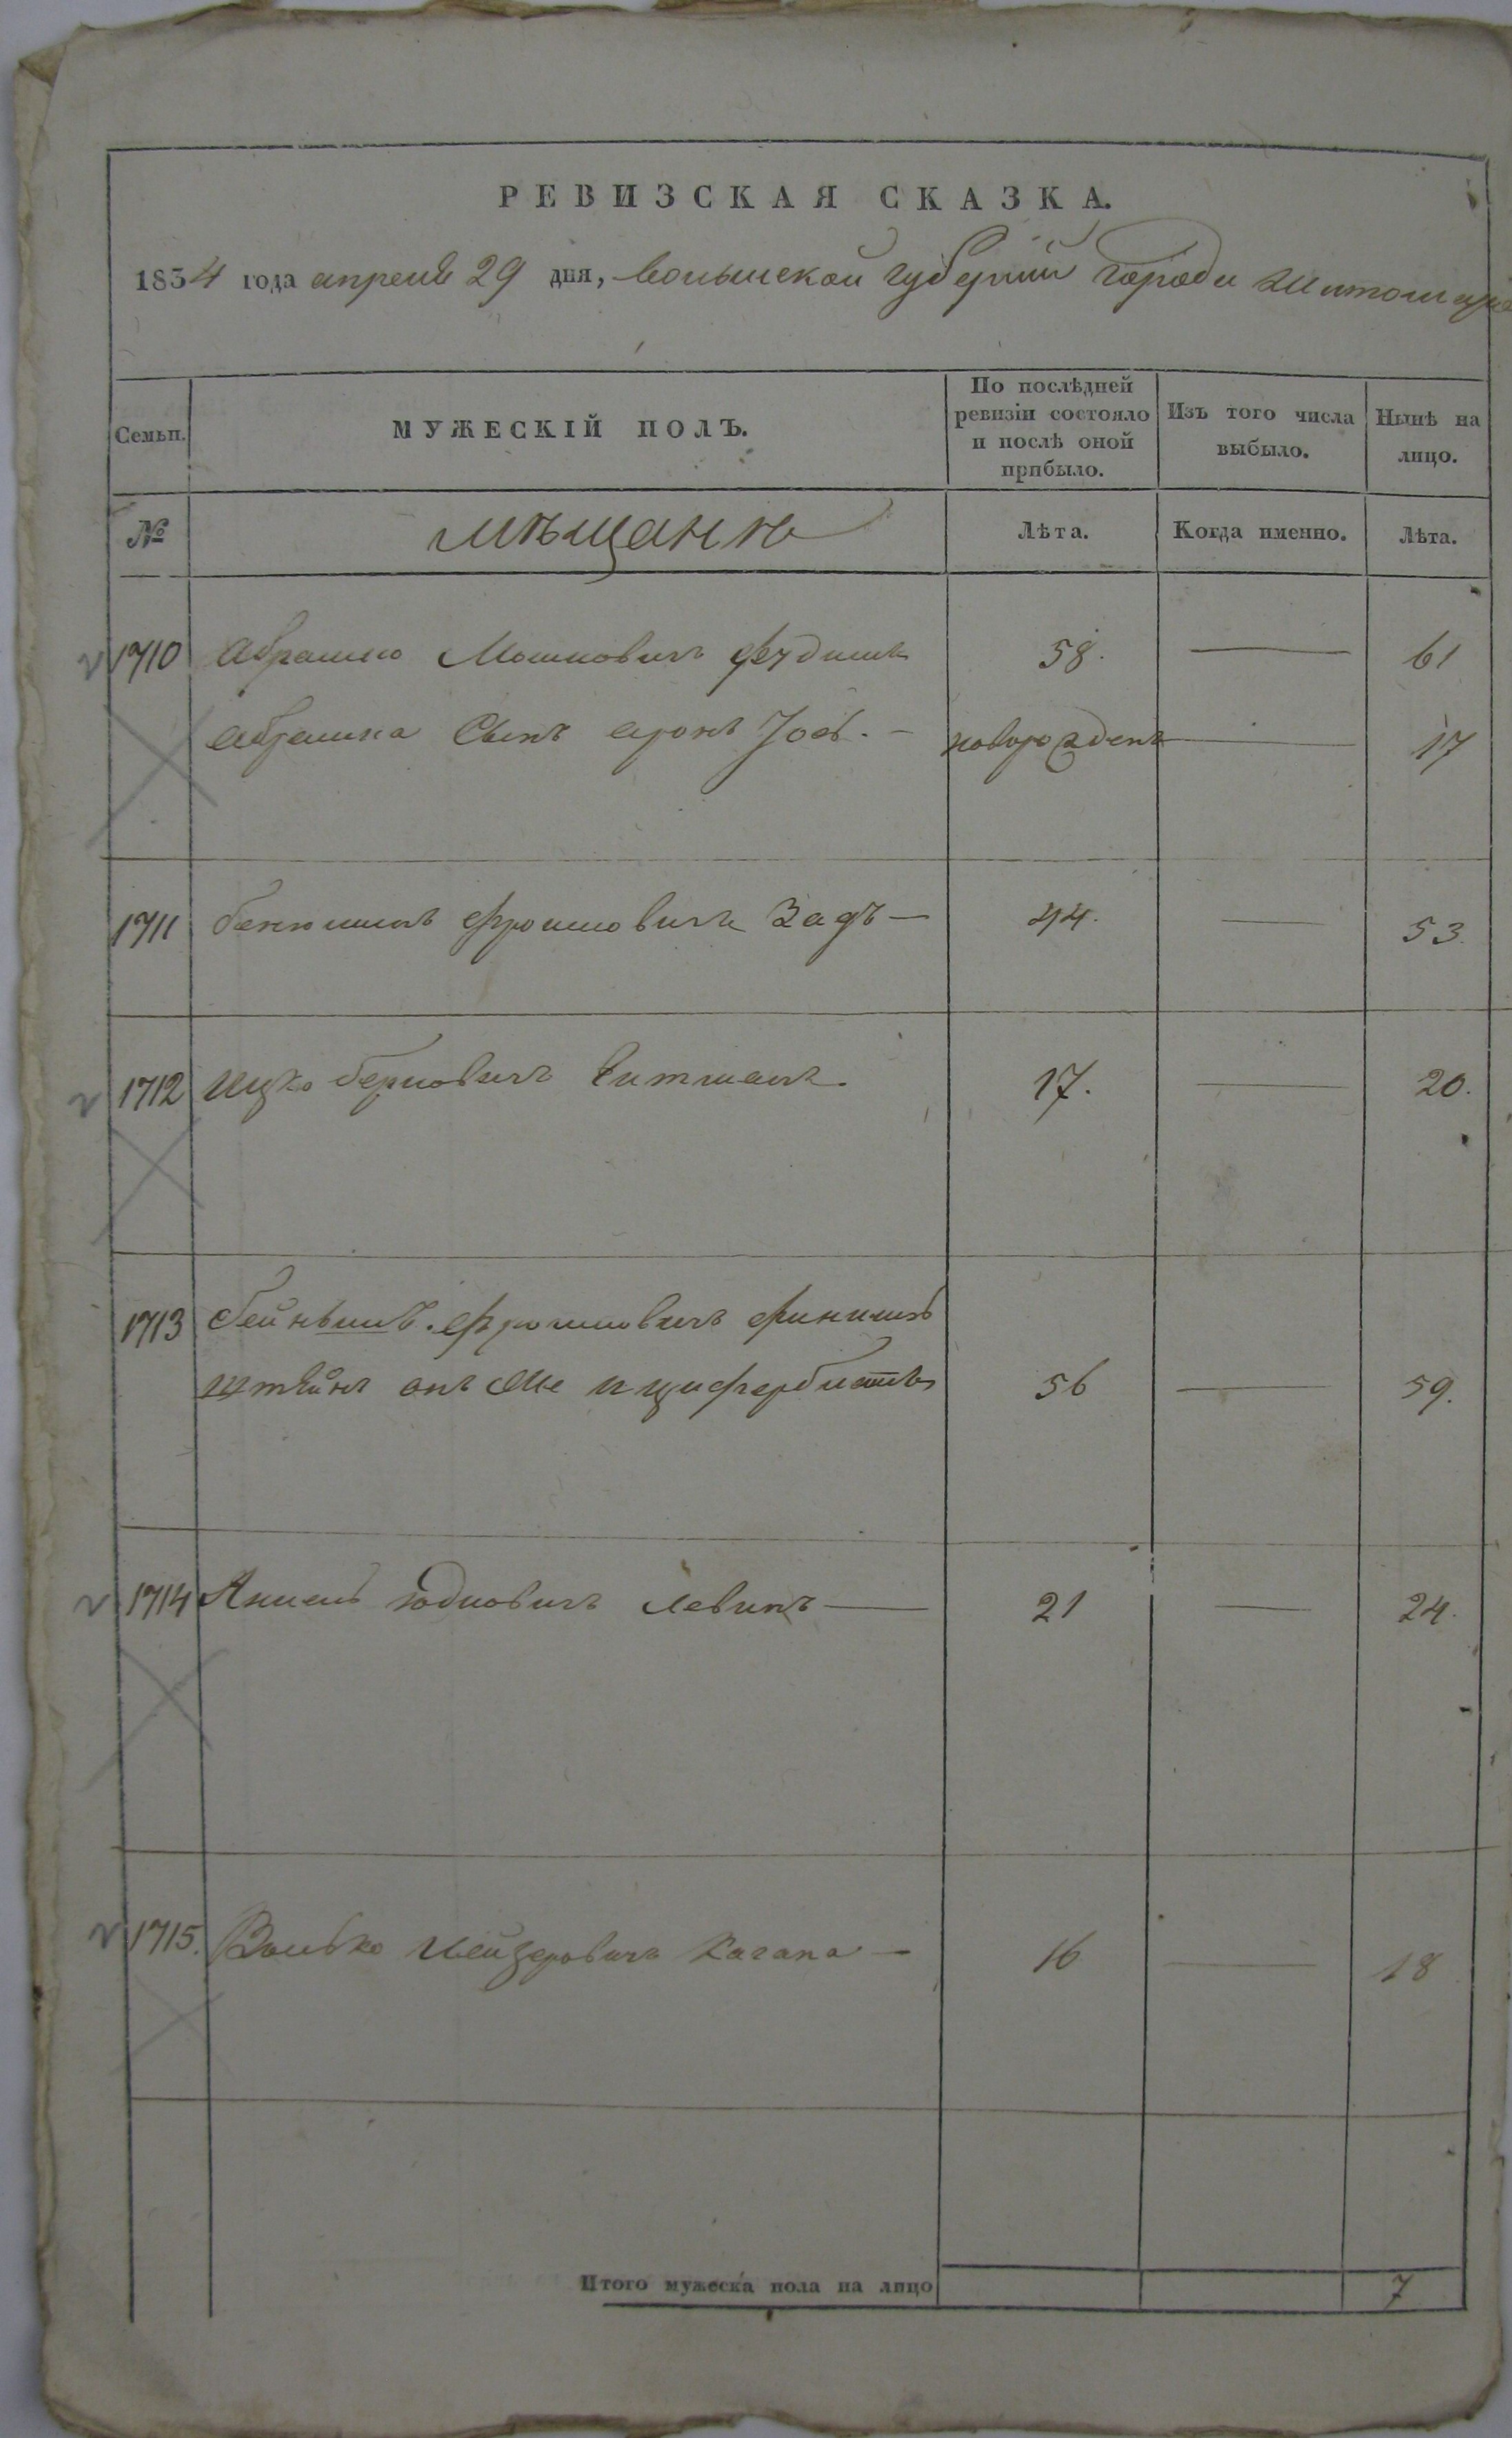 РЕВИЗСКАЯ СКАЗКА.
1834 года апреля 29 дня, волынской губернии города Житомира
Семьи.
МУЖЕСКІЙ ПОЛЪ.
По послѣдней ревизіи состояло и послѣ оной прибыло.
Изъ того числа выбыло.
Нынѣ на лицо.
№
мѣщанъ
Лѣта.
Когда именно.
Лѣта.
1710 Абрамко Мошковичъ 58. — 61
Абрамка Сынъ аронъ Iось. — новорожденъ — 17
1711 бенюминъ фроимовичъ — 44. — 53.
1712 Ицко берковичъ витманъ. 17. — 20.
1713 бейнышъ фроимовичъ
штейнъ онъ же и циферблатъ 56 — 59.
1714 Якиль юдковичъ левинъ — 21 — 24.
1715. Волько лейзеровичъ Кагана — 16 — 18
Итого мужеска пола на лицо 7